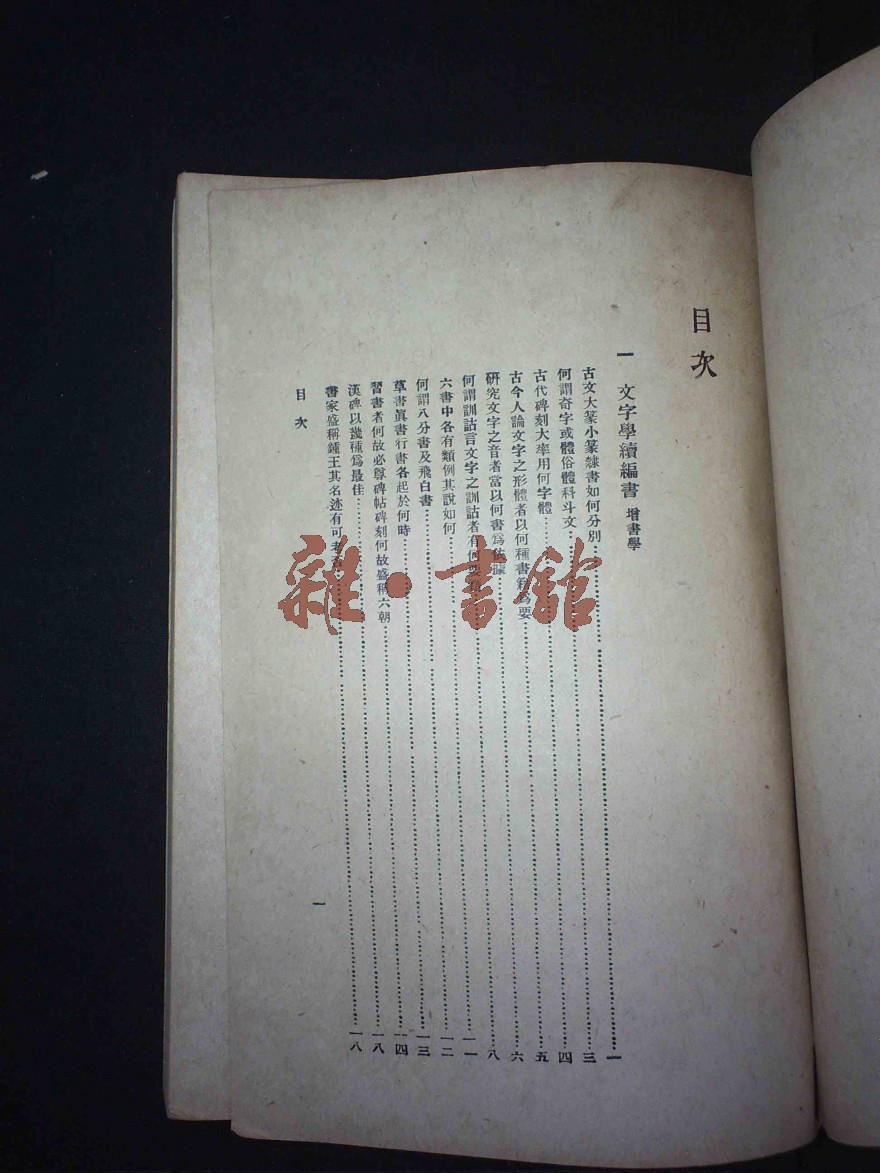 目次
一 文字學續編書 增書學
古文大篆小篆隸書如何分別……一
何謂奇字或體俗體科斗文……三
古代碑刻大率用何字體……四
古今人論文字之形體者以何種書籍爲要……五
研究文字之音者當以何書爲依據……六
何謂訓詁言文字之訓詁者有何……八
六書中各有類例其說如何……一一
何謂八分書及飛白書……一二
草書眞書行書各起於何時……一三
習書者何故必尊碑帖碑刻何故盛稱六朝……一四
漢碑以幾種爲最佳……一八
書家盛稱鍾王其名迹有可考否……一八
目次
一
雜·書館